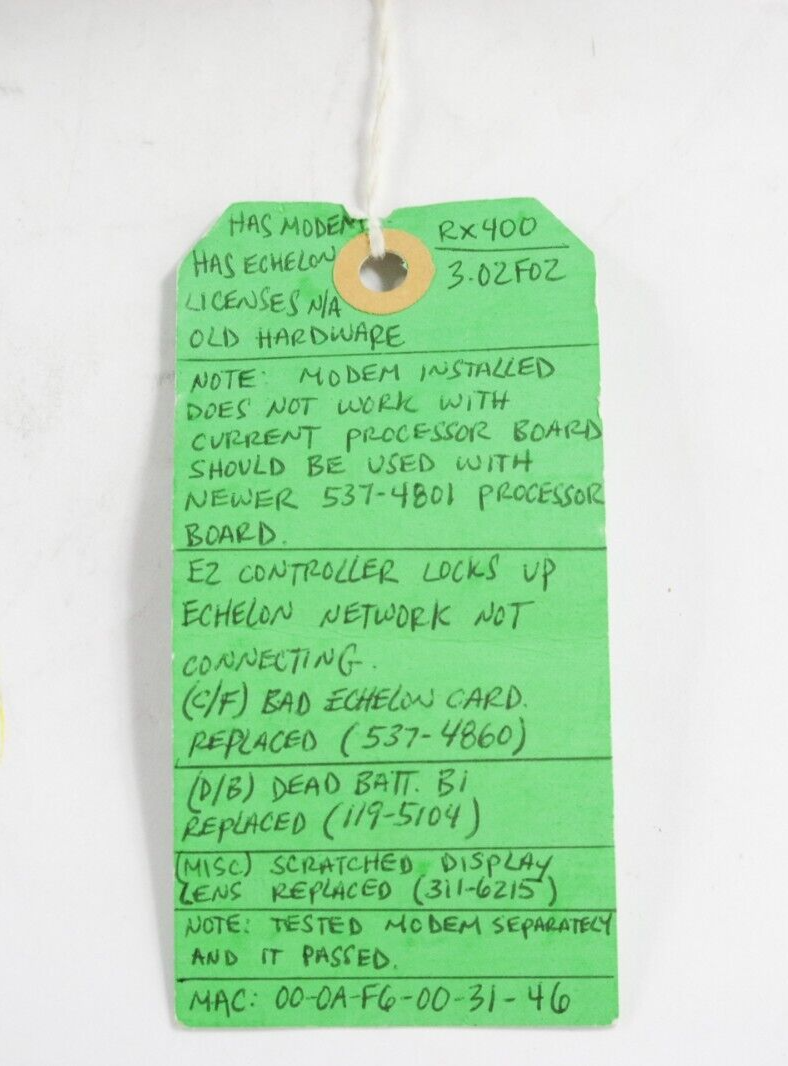 HAS MODEM
HAS ECHELON
LICENSES N/A
OLD HARDWARE
RX400
3.02F02
NOTE: MODEM INSTALLED
DOES NOT WORK WITH
CURRENT PROCESSOR BOARD
SHOULD BE USED WITH
NEWER 537-4801 PROCESSOR
BOARD.
E2 CONTROLLER LOCKS UP
ECHELON NETWORK NOT
CONNECTING.
(C/F) BAD ECHELON CARD.
REPLACED (537-4860)
(D/B) DEAD BATT. B1
REPLACED (119-5104)
(MISC) SCRATCHED DISPLAY
LENS REPLACED (311-6215)
NOTE: TESTED MODEM SEPARATELY
AND IT PASSED.
MAC: 00-0A-F6-00-31-46